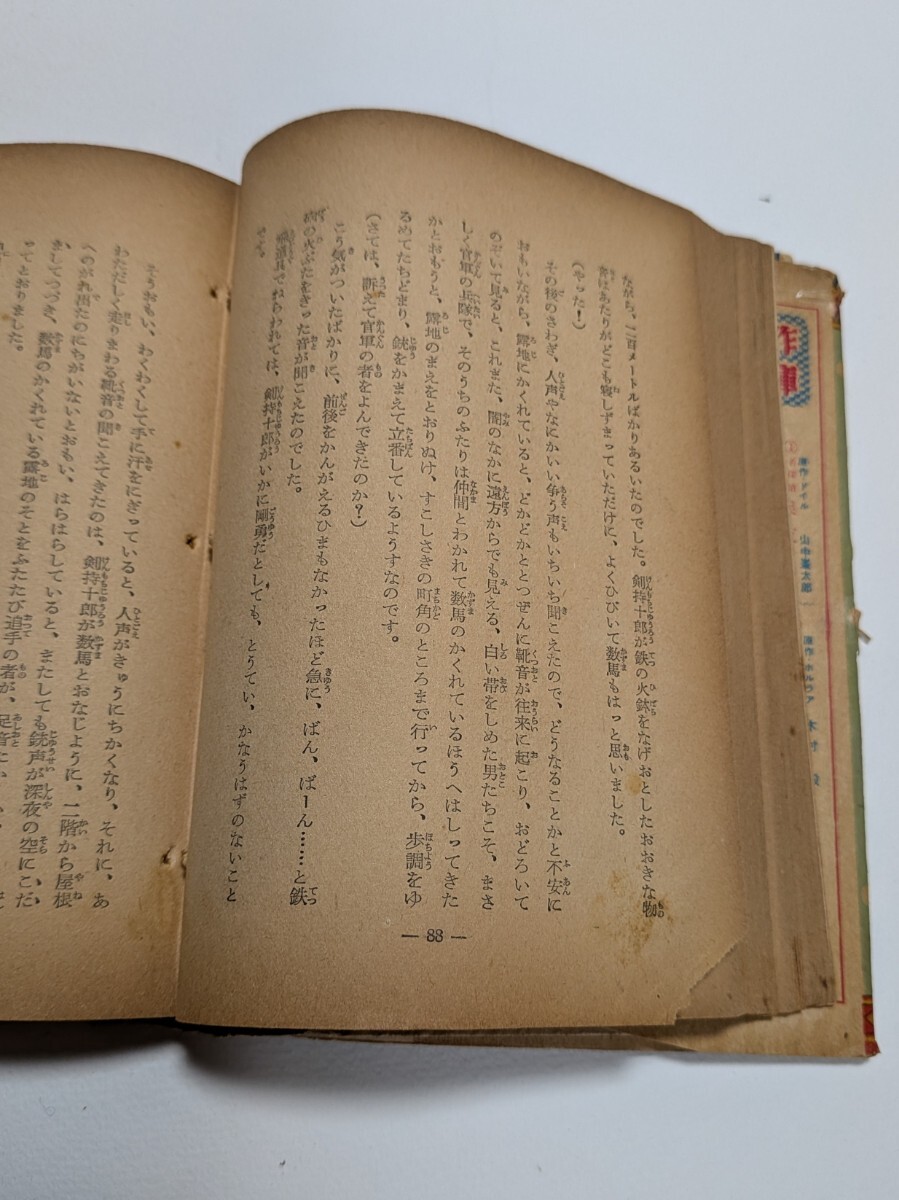 ながら、二百メートルばかりあるいたのでした。剣持十郎が鉄の火鉢をなげおとしたおおきな物
音はあたりがどこも寝しずまっていただけに、よくひびいて数馬もはっと思いました。
(やった!)
その後のさわぎ、人声やなにかいい争う声もいちいち聞こえたので、どうなることかと不安に
おもいながら、露地にかくれていると、どかどかととつぜんに靴音が往来に起こり、おどろいて
のぞいて見ると、これまた、闇のなかに遠方からでも見える、白い帯をしめた男たちこそ、まさ
しく官軍の兵隊で、そのうちのふたりは仲間とわかれて数馬のかくれているほうへはしってきた
かとおもうと、露地のまえをとおりぬけ、すこしさきの町角のところまで行ってから、歩調をゆ
るめてたちどまり、銃をかまえて立番しているようすなのです。
(さては、訴えて官軍の者をよんできたのか?)
こう気がついたばかりに、前後をかんがえるひまもなかったほど急に、ばん、ばーん……と鉄
砲の火ぶたをきった音が聞こえたのでした。
飛道具でねらわれては、剣持十郎がいかに剛勇だとしても、とうてい、かなうはずのないこと
です。
— 88 —
そうおもい、わくわくして手に汗をにぎっていると、人声がきゅうにちかくなり、それに、あ
わただしく走りまわる靴音の聞こえてきたのは、剣持十郎が数馬とおなじように、二階から屋根
へのがれ出たのにちがいないとおもい、はらはらしていると、またしても銃声が深夜の空にこだ
ましてつづき、数馬のかくれている露地のそとをふたたび追手の者が、足音
ってとおりました。
原作・ドイル 山中峯太郎
原作・ボルヴァ 木村